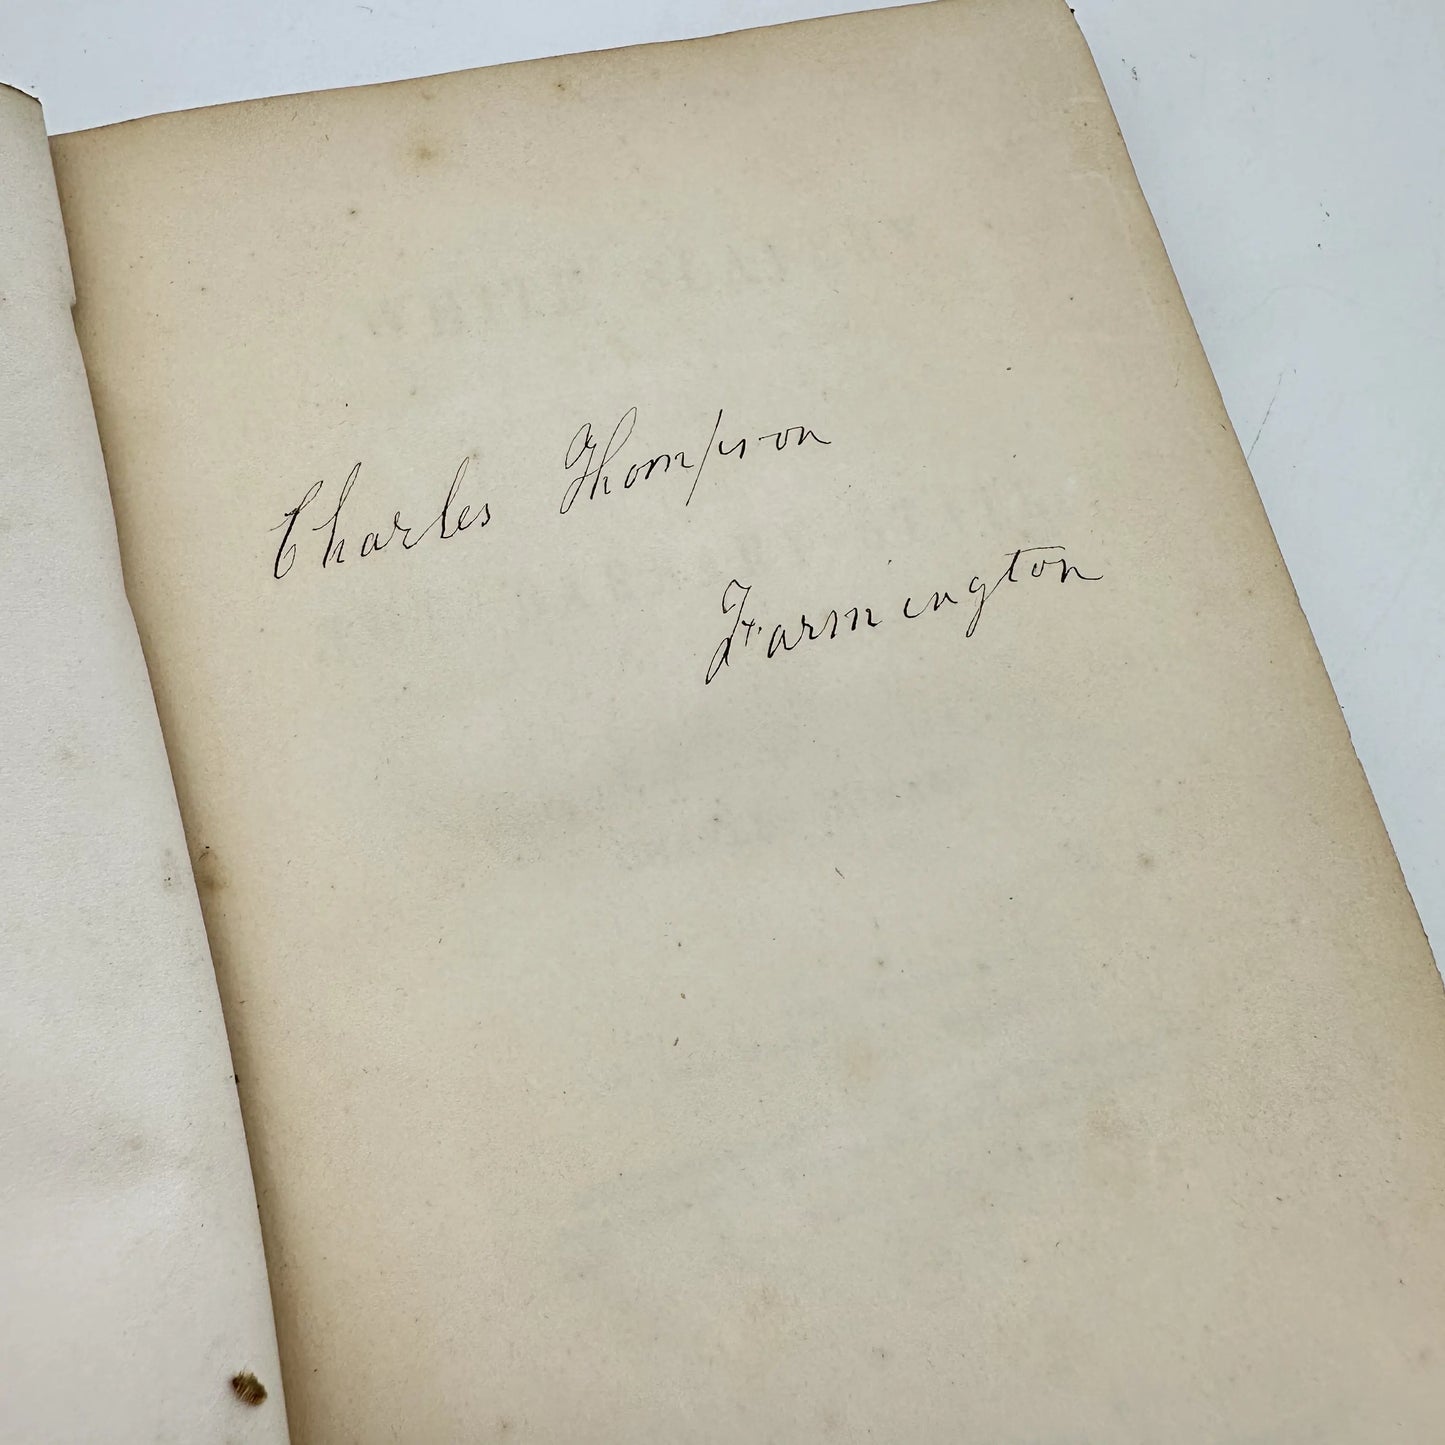 Charles Thompson
Farmington